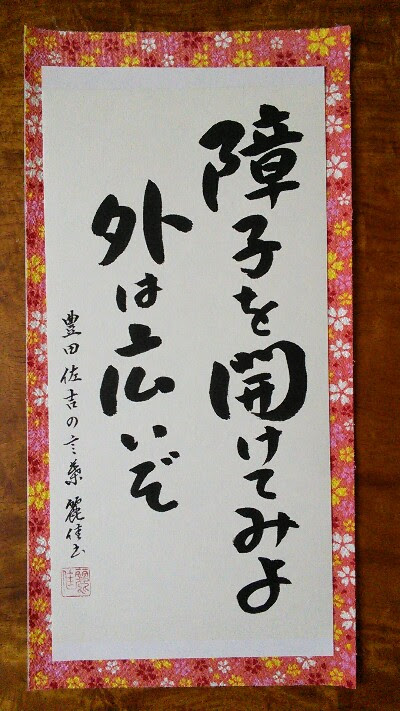 障子を開けてみよ
外は広いぞ
豊田佐吉の言葉 麗佳書